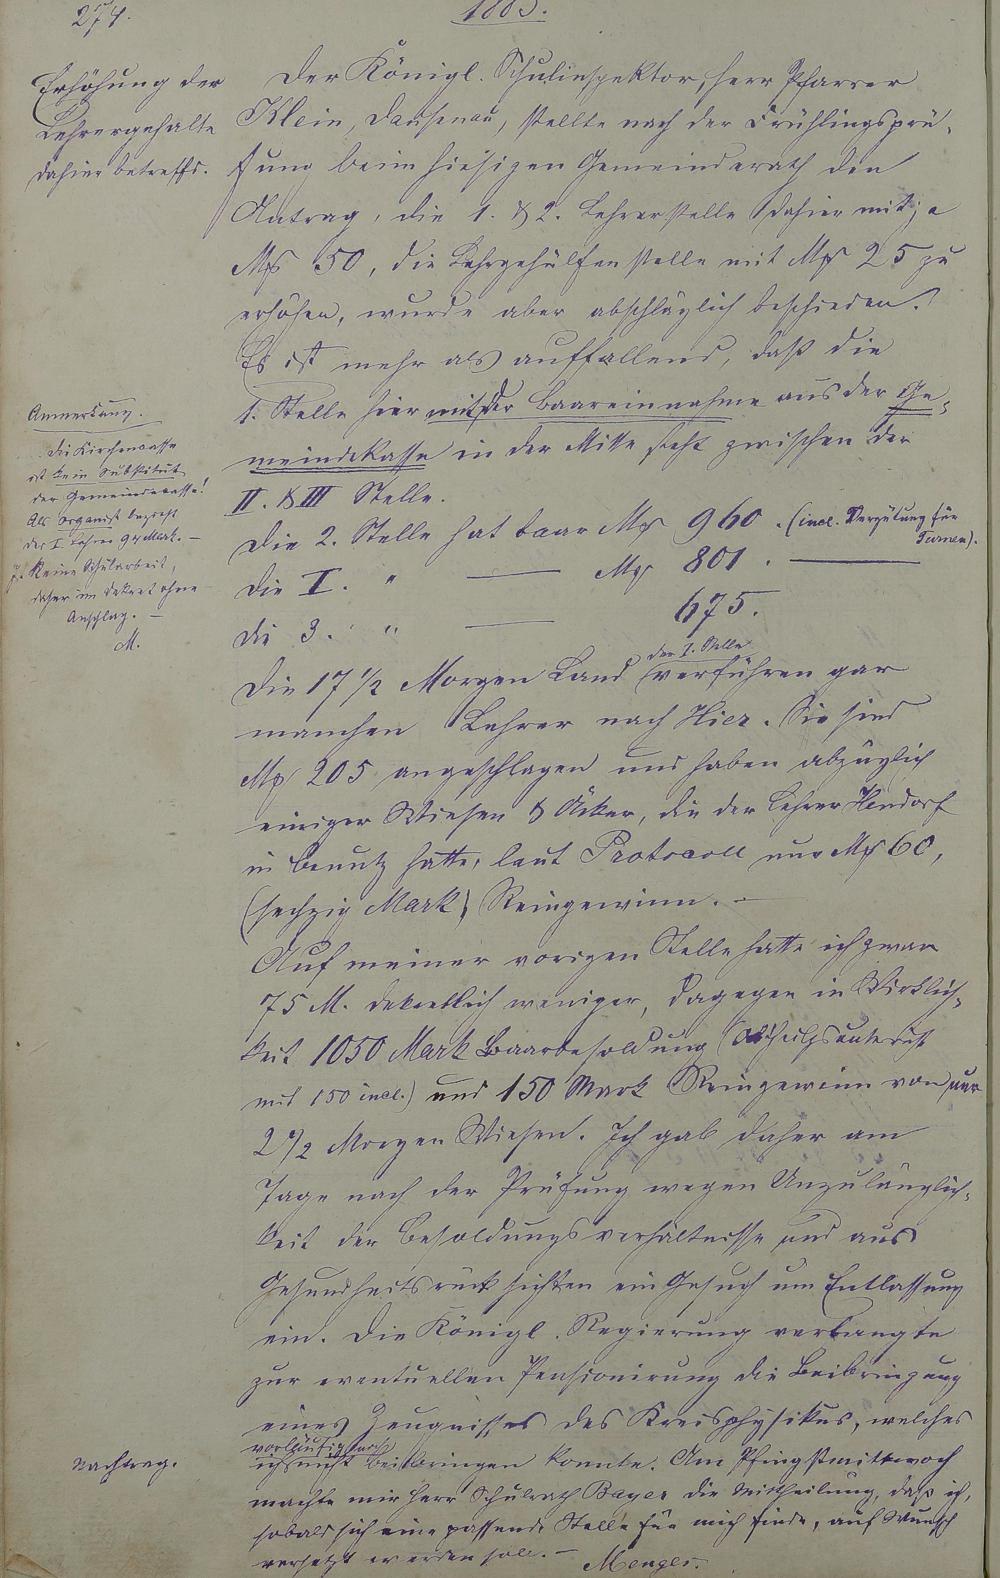 274.
1883.
Erhöhung der
Lehrergehalte
dahier betreffd.
Der Königl. Schulinspektor, Herr Pfarrer
Klein, Dausenau, stellte nach der Frühlingsprü-
fung beim hiesigen Gemeinderath den
Antrag, die 1. & 2. Lehrerstelle dahier mit je
Mk 50, die Lehrgehülfenstelle mit Mk 25 zu
erhöhen, wurde aber abschläglich beschieden.
Es ist mehr als auffallend, daß die
1. Stelle hier mit der Baareinnahme aus der Ge-
meindekasse in der Mitte steht zwischen der
II. & III Stelle.
Die 2. Stelle hat baar Mk 960. (incl. Vergütung für
Turnen).
Die I. " — Mk 801. —
Die 3. " — 675.
Anmerkung.
Die Kirchencasse
ist kein Substitut
der Gemeindecasse!
Als Organist bezieht
der I Lehrer 94 Mark. —
Ist keine Schularbeit,
daher im Dekret ohne
Anschlag. —
M.
der I. Stelle
Die 17 1/2 Morgen Land verführen gar
manchen Lehrer nach Hier. Sie sind
Mk 205 angeschlagen und haben abzüglich
einiger Wiesen & Äcker, die der Lehrer
in Benutz hatte, laut Protocoll nur Mk 60,
(sechzig Mark) Reingewinn. —
Auf meiner vorigen Stelle hatte ich zwar
75 M. dekretlich weniger, dagegen in Wirklich-
keit 1050 Mark Baarbesoldung
mit 150 incl.) und 150 Mark Reingewinn von nur
2 1/2 Morgen Wiesen. Ich gab daher am
Tage nach der Prüfung wegen Unzulänglich-
keit der Besoldungsverhältnisse und aus
Gesundheitsrücksichten ein Gesuch um Entlassung
ein. Die Königl. Regierung verlangte
zur eventuellen Pensionirung die Beibringung
eines Zeugnisses des Kreisphysikus, welches
vorläufig noch
ich nicht beibringen konnte. Am Pfingstmittwoch
Nachtrag.
machte mir Herr Schulrath Bayer die Mittheilung, daß ich,
sobald sich eine passende Stelle für mich finde, auf Wunsch
versetzt werden soll. — Menges.